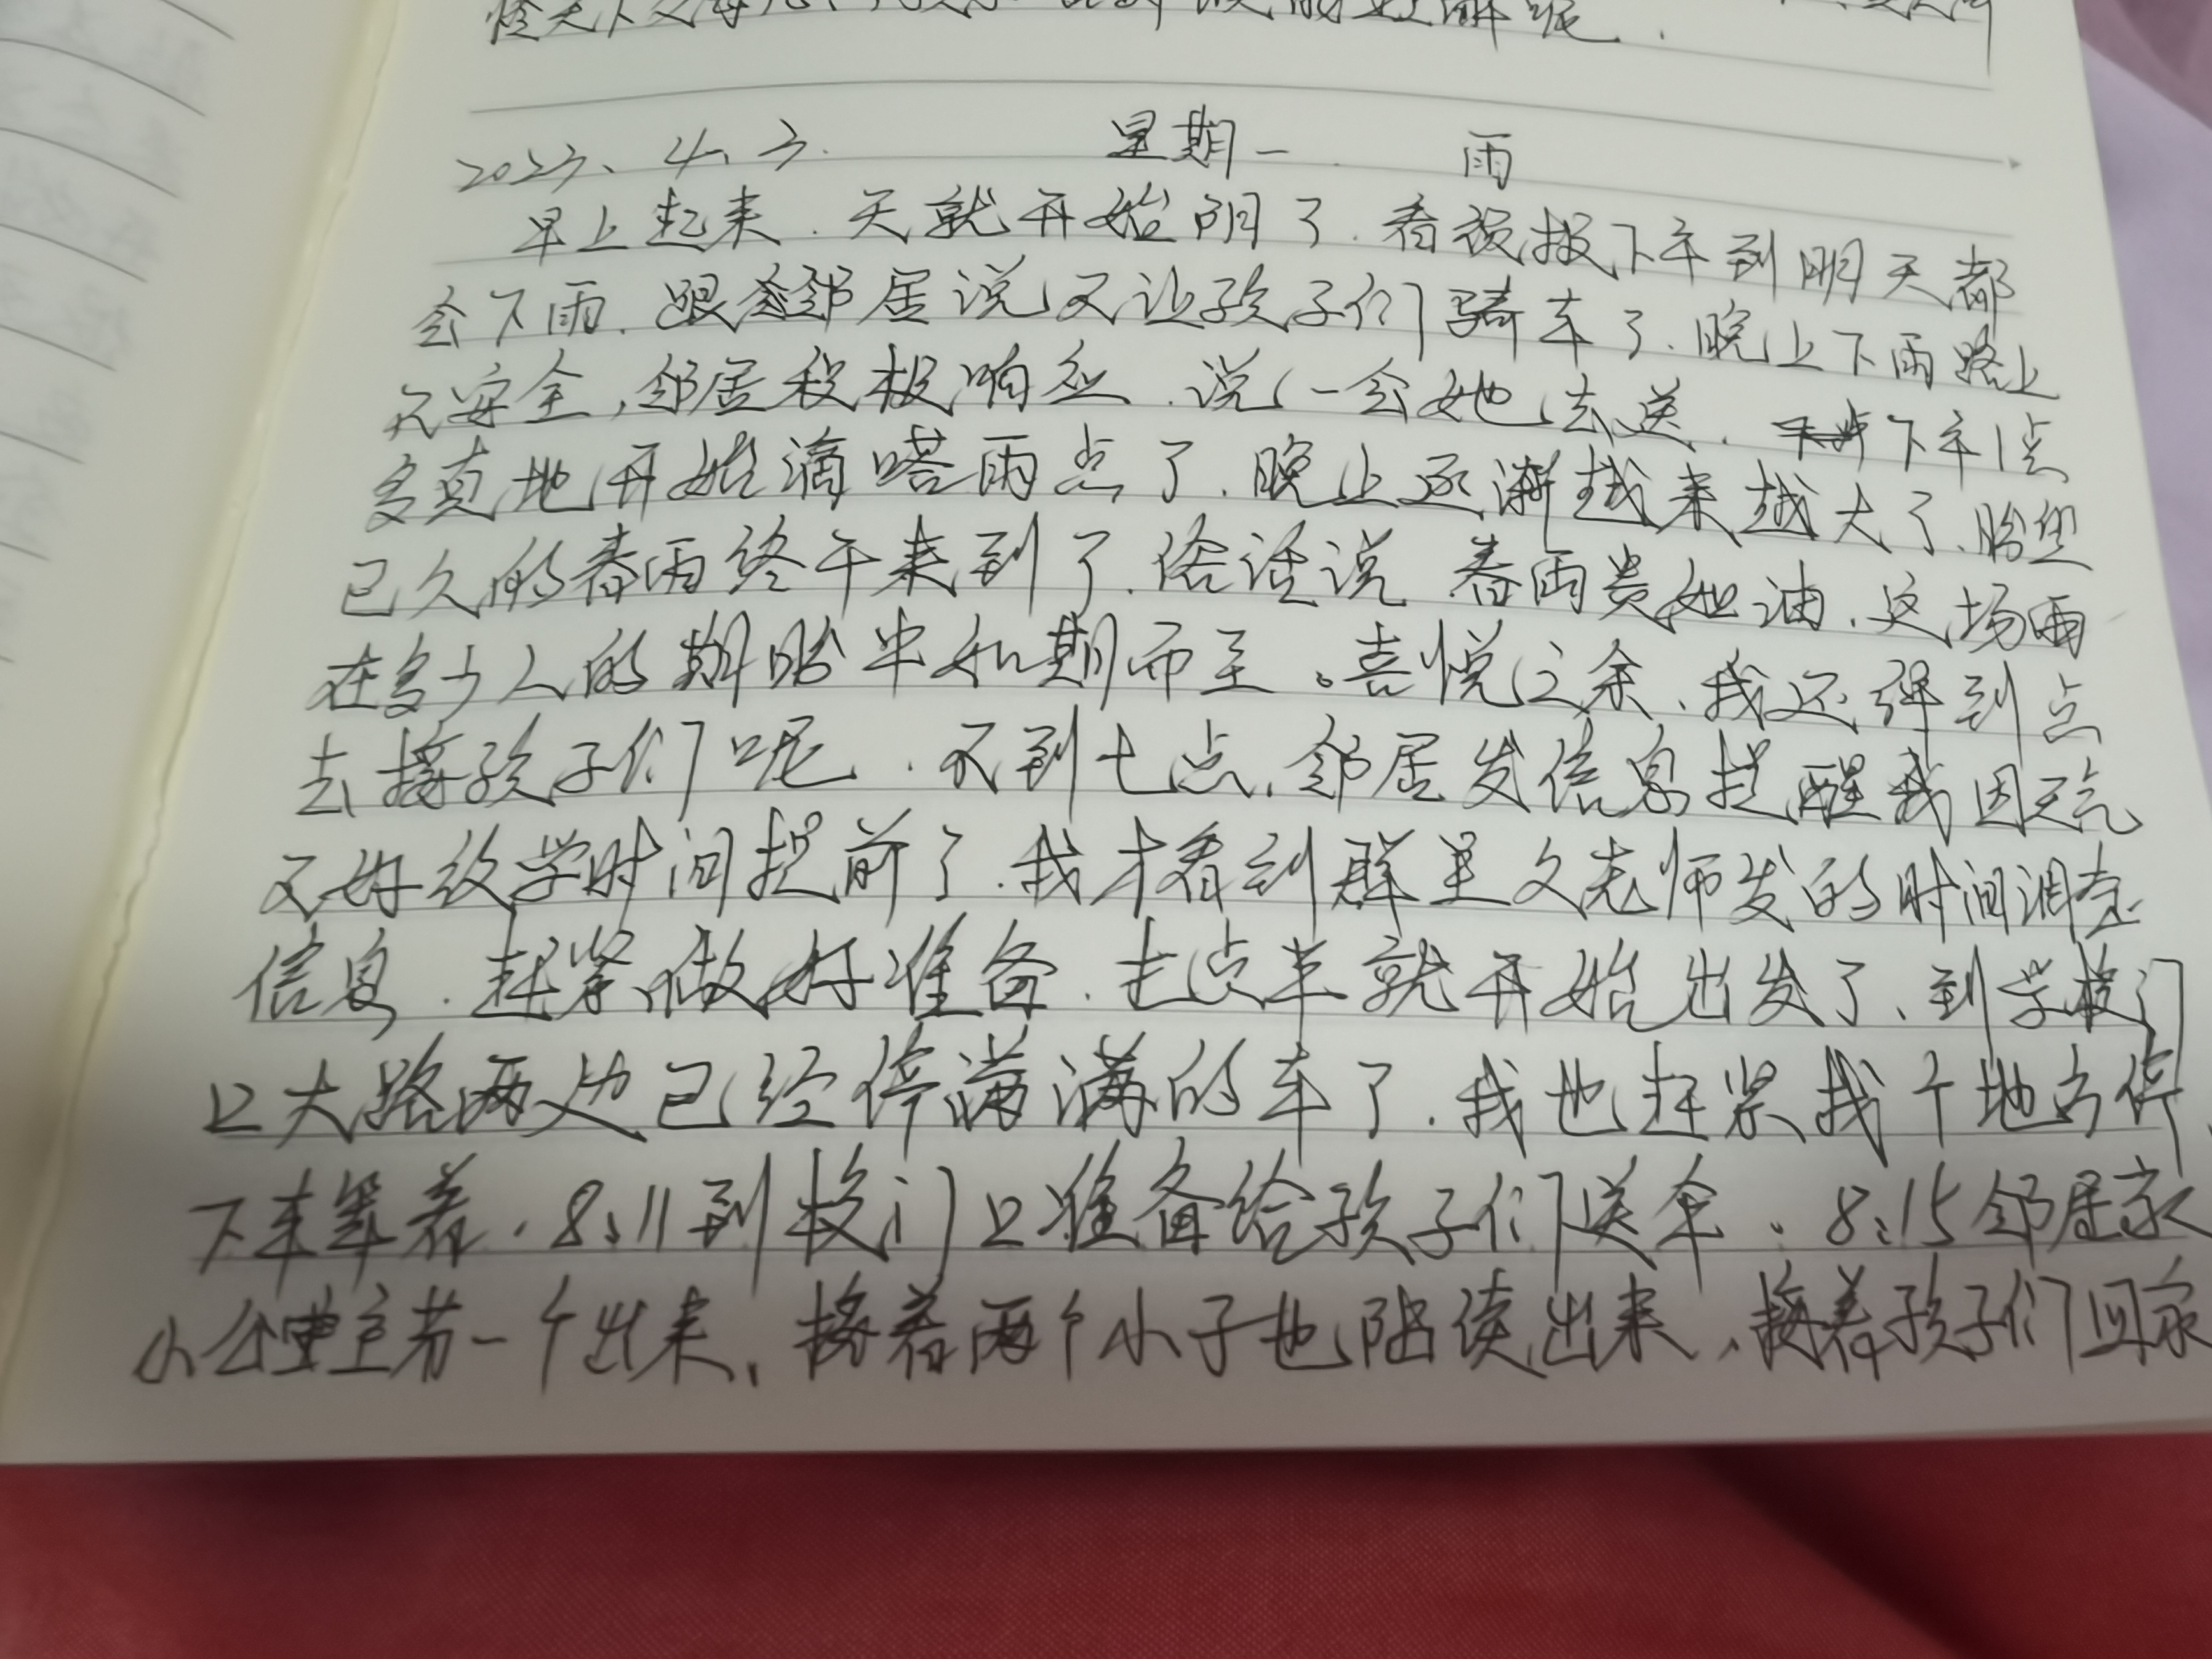 2023、4、3. 星期一. 雨
早上起来.天就开始阴了.看预报下午到明天都
会下雨.跟邻居说不让孩子们骑车了.晚上下雨路上
不安全,邻居积极响应.说一会她去送.下午1点
多真地开始滴嗒雨点了.晚上逐渐越来越大了、盼望
已久的春雨终于来到了.俗话说 春雨贵如油.这场雨
在多少人的期盼中如期而至。喜悦之余、我还得到点
去接孩子们呢.不到七点.邻居发信息提醒我因天气
不好放学时间提前了.我才看到群里文老师发的时间调整
信息.赶紧做好准备.七点半就开始出发了、到学校门
口大路两边已经停满满的车了.我也赶紧找个地方停、
下车等着.8:11到校门口准备给孩子们送伞.8:15邻居家
小公主第一个出来、接着两个小子也陆续出来、接着孩子们回家